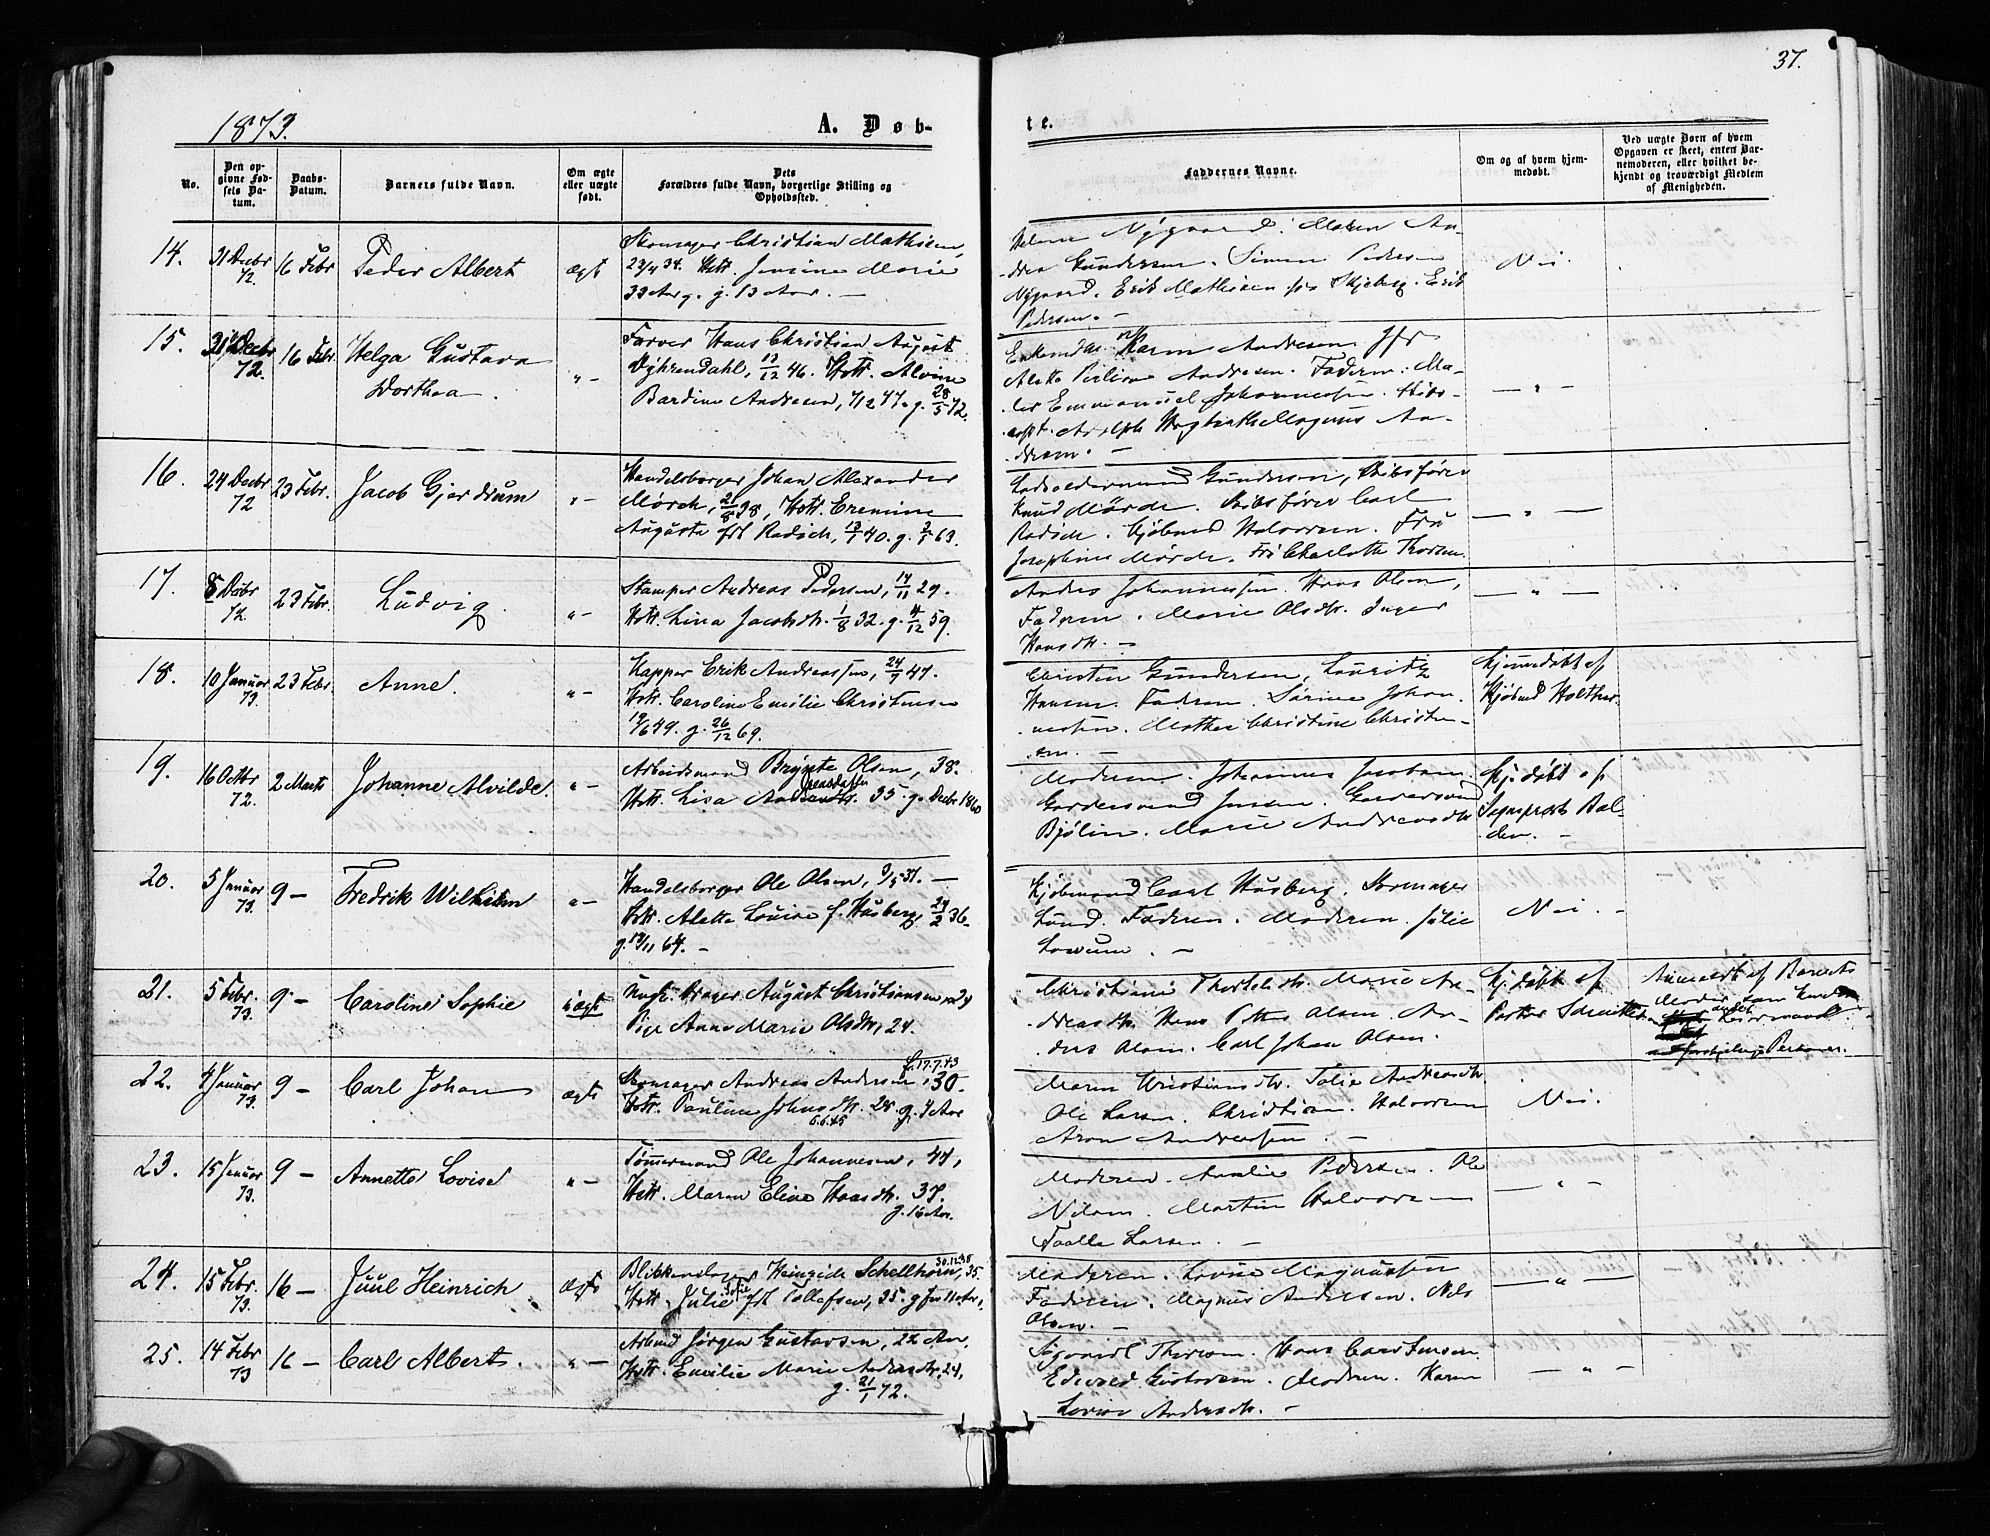 37.
1873.
A. Døb-
te.
No.
Den op-
givne Fød-
sels Da-
tum.
Daabs-
Datum.
Barnets fulde Navn.
Om ægte
eller uægte
født.
Dets
Forældres fulde Navn, borgerlige Stilling og
Opholdssted.
Faddernes Navne.
Om og af hvem hjem-
medøbt.
Ved uægte Børn af hvem
Opgaven er skeet, enten Bar-
nemoderen, eller hvilket be-
kjendt og troværdigt Medlem
af Menigheden.
14.
31 Decbr
72.
16 Febr
Peder Albert
ægt
Skomager Christian Mathisen,
23/4 34. Hstr. Jensine Marie
33 Aar g. 13 Aar. —
Nygaard. Maren An-
drea Gundersen. Simen Pedersen
Nygaard. Erik Mathisen fra Skjeberg. Erik
Pedersen. —
Nei.
15.
Decbr
72.
16 Febr.
Helga Gustava
Dorthea.
" —
Farver Hans Christian August
Dyhrendahl, 13/12 46. Hstr. Alvine
Bardine Andresen, 7/12 47. g. 28/5 72.
Karen Andresen. Jfr
Alette Andresen. Faderen. Ma-
ler Emmanuel Johannessen. Skibs-
capt. Adolph Magnus An-
dresen. —
— " —
16.
24 Decbr
72
23 Febr.
Jacob Gjerdrum
" —
Handelsborger Johan Alexander
Mørch, 21/8 38, Hstr. Eremine
Augusta fdt Radich, 13/1 40. g. 3/5 63.
Gundersen, Skibsfører
Knud Mörch. Skibsfører Carl
Radich. Kjøbmd Halvorsen. Fru
Josephine Mörch. Frk Charlotte Thoresen.
— " —
17.
8 Dcbr
72.
23 Febr.
Ludvig.
" —
Stamper Andreas Pedersen, 14/11 29.
Hstr. Lina Jacobsdtr. 1/8 32. g. 4/12 59.
Anders Johannessen. Hans Olsen,
Faderen. Marie Olsdtr. Inger
Hansdtr. —
— " —
18.
10 Januar
73.
23 Febr.
Anne.
" —
Kapper Erik Andreassen, 24/7 47.
Hstr. Caroline Emilie Christensen
19/6 49. g. 26/12 69.
Christen Gundersen, Lauritz
Hansen. Faderen. Sörine Johan-
nessen. Mathea Christine Christen-
sen. —
Hjemmedøbt af
Kjøbmd Holther.
19.
16 Octbr
72.
2 Marts
Johanne Alvilde.
" —
Arbeidsmand Brynte Olsen, 38.
Hstr. Lisa 35. g. Decbr 1860
Moderen. Johannes Jacobsen.
Gardersvend Jensen. Garversvend
Bjølin. Marie Andreasdtr
Hj. døbt af
Sognepræst Bal-
chen. —
20.
5 Januar
73.
9 —
Fredrik Wilhelm
" —
Handelsborger Ole Olsen, 3/5 37. —
Hstr. Alette Louise f. Husberg, 24/2 36.
g. 19/11 64. —
Kjøbmand Carl Husberg. Skomager
Lund. Faderen. Moderen. Julie
—
Nei. —
21.
5 Febr.
73.
9 —
Caroline Sophie
uægt
Ungk. August Christiansen
Pige Anne Marie Olsdtr, 24.
Christiane Thorkelsdtr. Marie An-
dreasdtr. Hans Olsen. An-
ders Olsen. Carl Johan Olsen.
Hj. døbt af
Anmeldt af Barnets
Moder, som
Personer.
22.
4 Januar
73.
9 —
Carl Johan
ægt
f. 17.7.43
Skomager Andreas Andersen, 30.
Hstr. Pauline Johnsdtr. 28 g. 7 Aar
6.6.45
Maren Kristiansdtr. Julie Andreasdtr.
Ole Larsen. Christian Halvorsen
Aron Andreassen. —
Nei.
23.
15 Januar
73.
9 —
Annette Lovise
" —
Tömmermand Ole Johannesen, 44,
Hstr. Maren Eline Hansdtr. 37.
g. 16 Aar.
Moderen. Amalie Pedersen. Ole
Nilsen. Martin Halvorsen
Larsen. —
— " —
24.
15 Febr.
73.
16 —
Juul Heinrich
Ægt
30.12.
Blikkenslager Heinrich Schellhorn, 35.
Hstr. Julie Sofie fdt Tollefsen, 35. g for 11 Aar,
Moderen. Lovise Magnussen
Faderen. Magnus Andersen. Nils
Olsen. —
— " —
25.
14 Febr
73
16 —
Carl Albert.
" —
Arbmd Jörgen Gustavsen, 22 Aar.
Hstr. Emilie Marie Andreasdtr. 24,
g. 21/1 72.
Thoresen. Hans Jensen.
Edvard Gustavsen. Moderen. Karen
Lovise Andersdtr. —
— " —